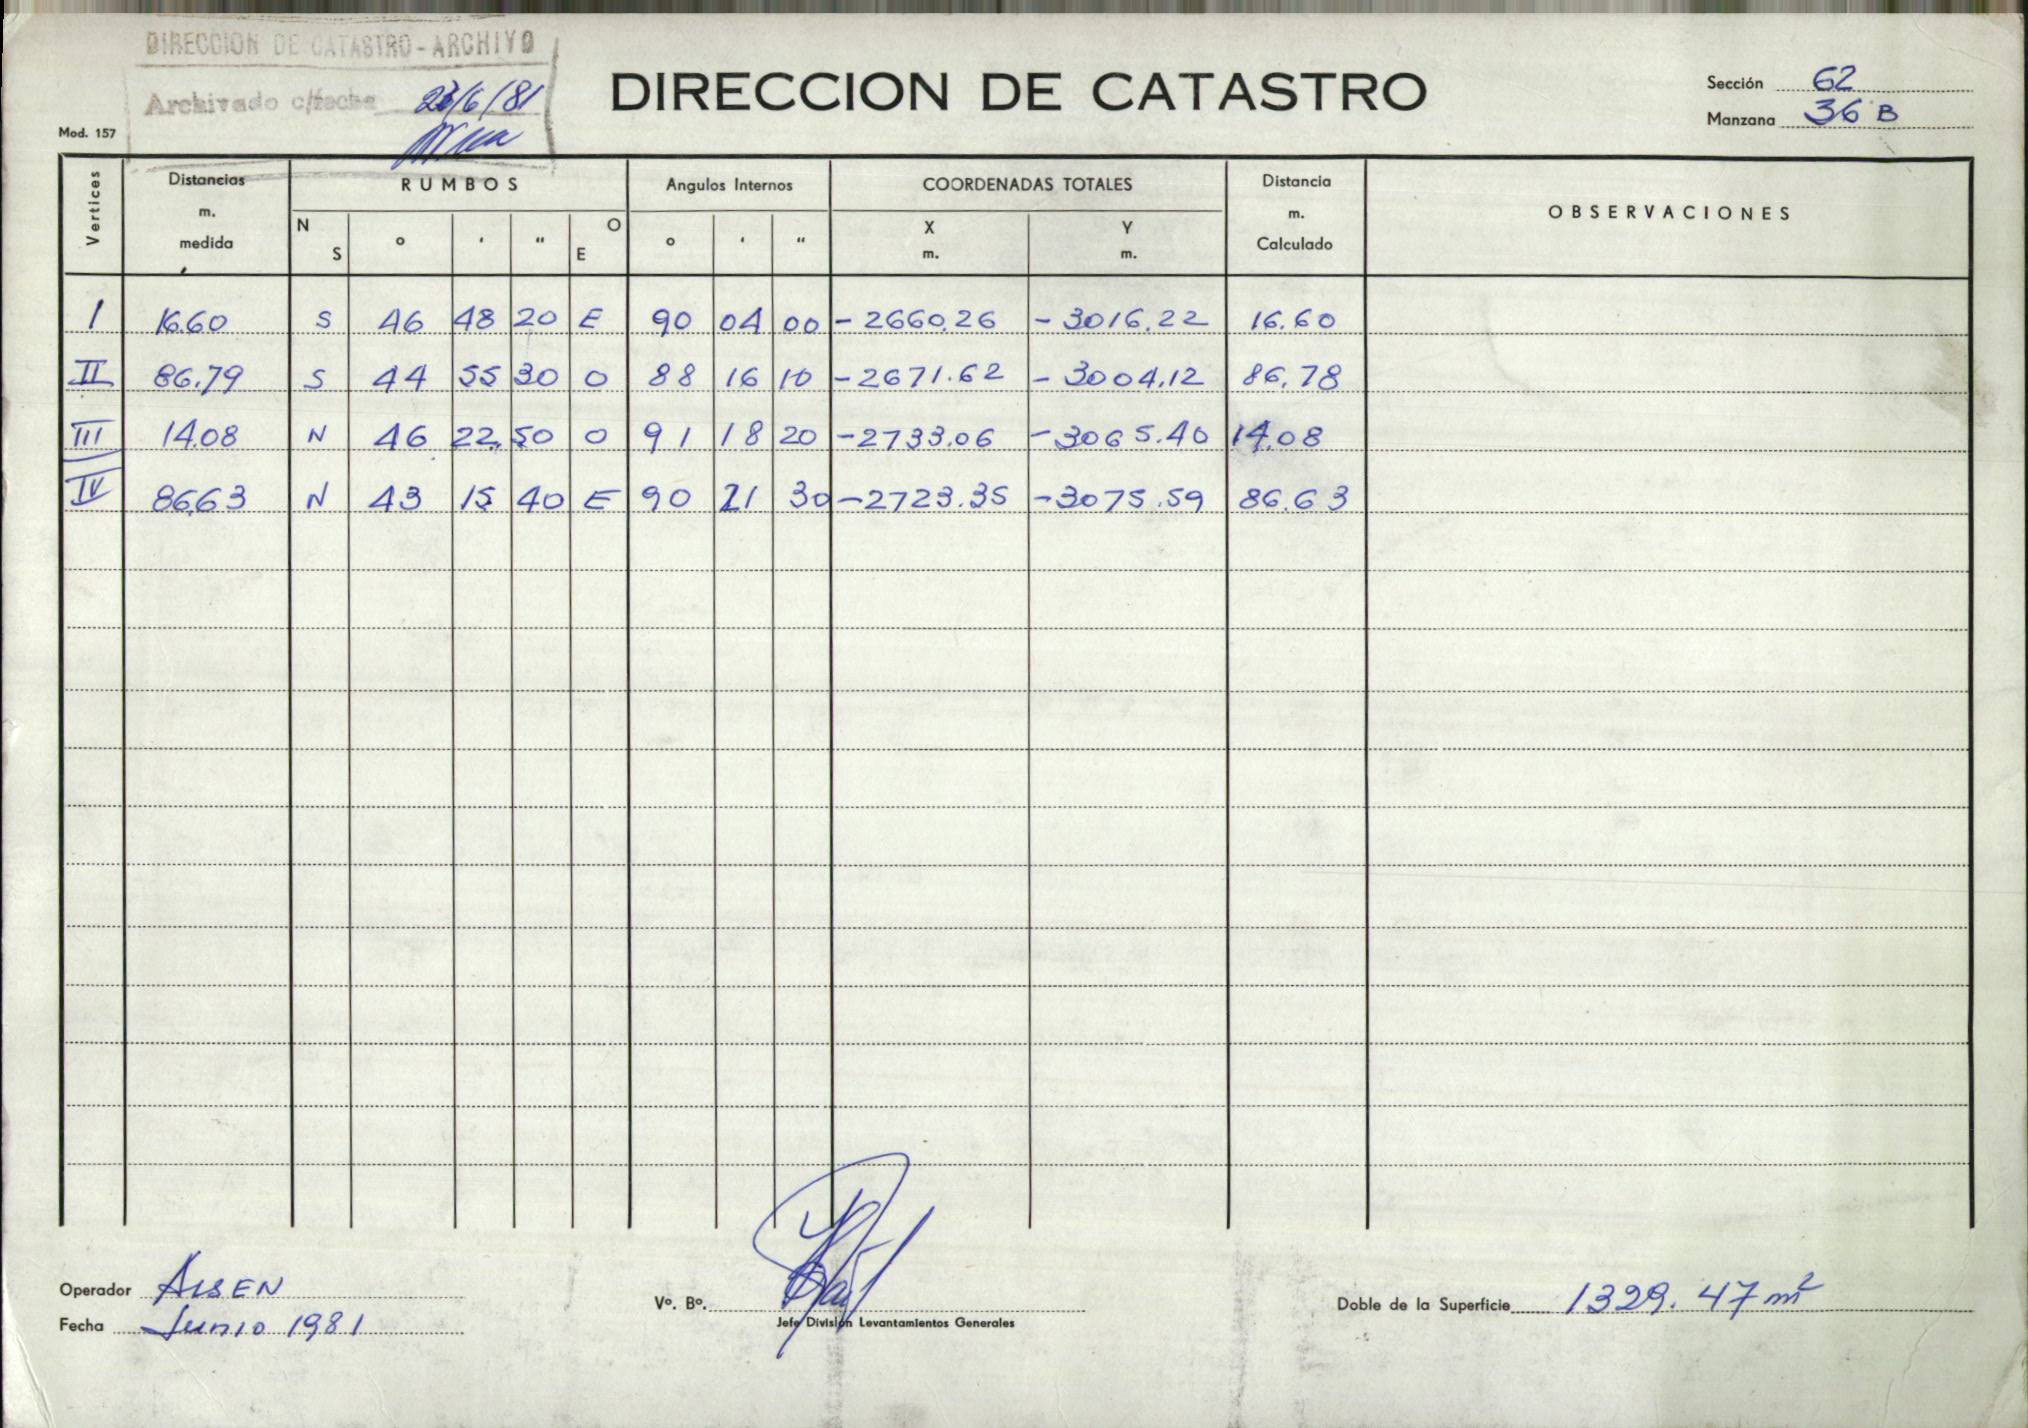 DIRECCION DE CATASTRO - ARCHIVO
Archivado c/fecha 23/6/81
DIRECCION DE CATASTRO
Sección 62
Manzana 36 B
Mod. 157
Vertices
Distancias m. medida
RUMBOS
N S ° ' " O E
Angulos Internos
° ' "
COORDENADAS TOTALES
X m. Y m.
Distancia m. Calculado
OBSERVACIONES
I 16.60 S 46 48 20 E 90 04 00 -2660.26 -3016.22 16.60
II 86.79 S 44 55 30 O 88 16 10 -2671.62 -3004.12 86.78
III 14.08 N 46 22 50 O 91 18 20 -2733.06 -3065.40 14.08
IV 86.63 N 43 15 40 E 90 21 30 -2723.35 -3075.59 86.63
Operador
Fecha Junio 1981
Vº. Bº.
Jefe División Levantamientos Generales
Doble de la Superficie 1329.47 m²